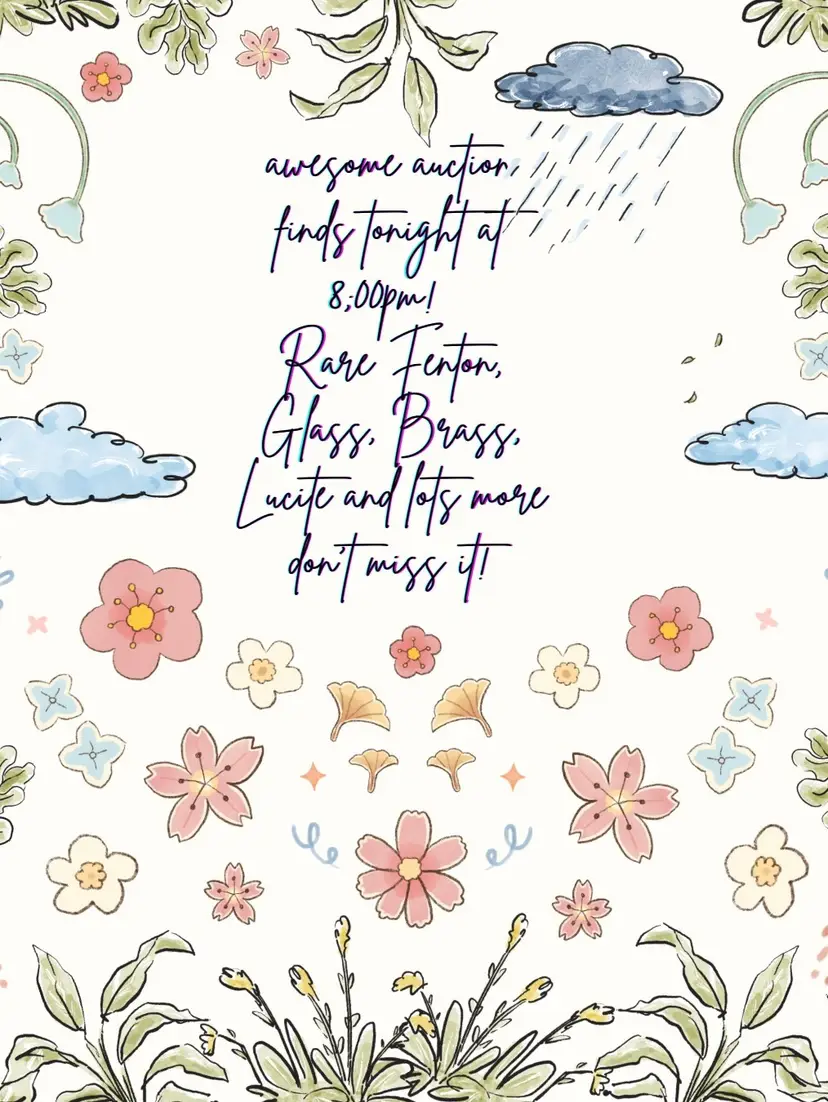 awesome auction
finds tonight at
8;00pm!
Rare Fenton,
Glass, Brass,
Lucite and lots more
don't miss it!